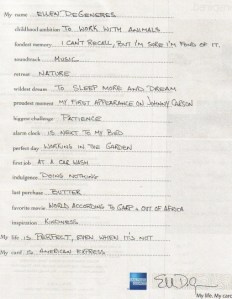 My name ELLEN DEGENERES
childhood ambition TO WORK WITH ANIMALS
fondest memory I CAN'T RECALL, BUT I'M SURE I'M FOND OF IT.
soundtrack MUSIC
retreat NATURE
wildest dream TO SLEEP MORE AND DREAM
proudest moment MY FIRST APPEARANCE ON JOHNNY CARSON
biggest challenge PATIENCE
alarm clock IS NEXT TO MY BED
perfect day WORKING IN THE GARDEN
first job AT A CAR WASH
indulgence DOING NOTHING
last purchase BUTTER
favorite movie WORLD ACCORDING TO GARP + OUT OF AFRICA
inspiration KINDNESS
My life IS PERFECT, EVEN WHEN IT'S NOT
My card IS AMERICAN EXPRESS
My life. My card